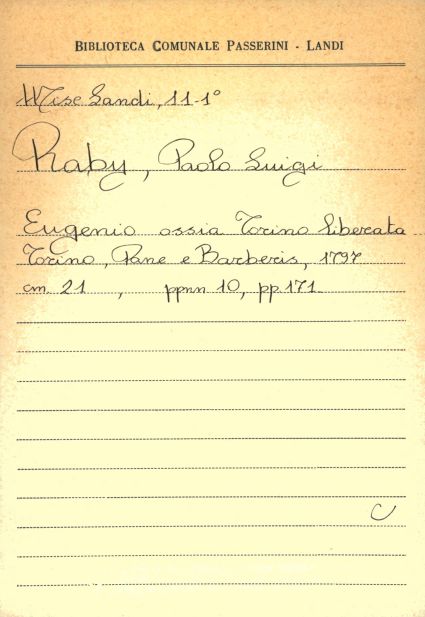 BIBLIOTECA COMUNALE PASSERINI - LANDI
Misc Landi, 11-1°
Raby, Paolo Luigi
Eugenio ossia Torino liberata
Torino, Pane e Barberis, 1797
cm. 21 , ppnn 10, pp. 171
C